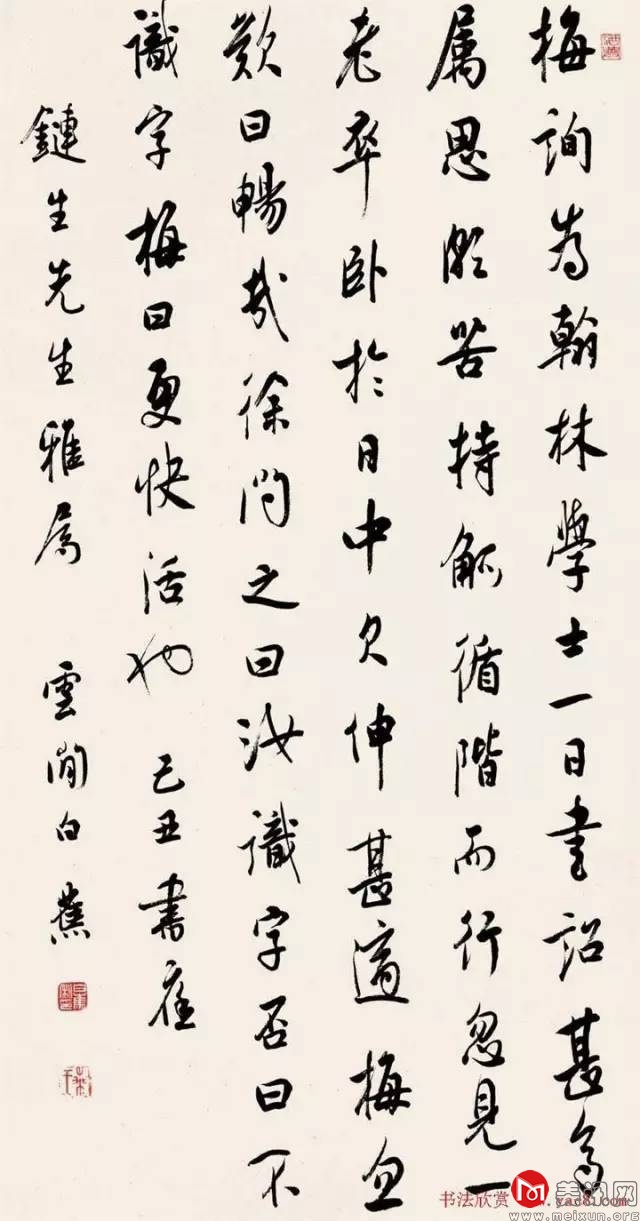 梅詢為翰林學士一日書詔甚多
屬思頗苦持觚循階而行忽見一
老卒臥於日中欠伸甚適梅忽
歎曰暢哉徐問之曰汝識字否曰不
識字梅曰更快活也 己丑書應
鏈生先生雅屬 雲間白蕉
书法欣赏
美迅网
www.meixun.org